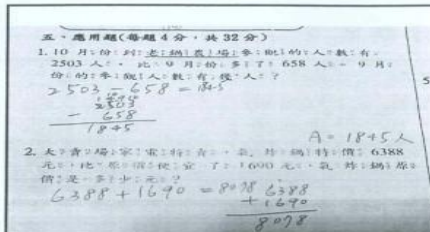 五、應用題(每題4分,共32分)
1. 10月份到老鍋農場參觀的人數有
2503人,比9月份多了658人,9月
份的參觀人數有幾人?
2503-658=1845
2503
- 658
1845
A=1845人
2. 大青家電特賣,氣炸鍋特價6388
元,比原價便宜了1690元,氣炸鍋原
價是多少元?
6388+1690=8078
6388
+1690
8078